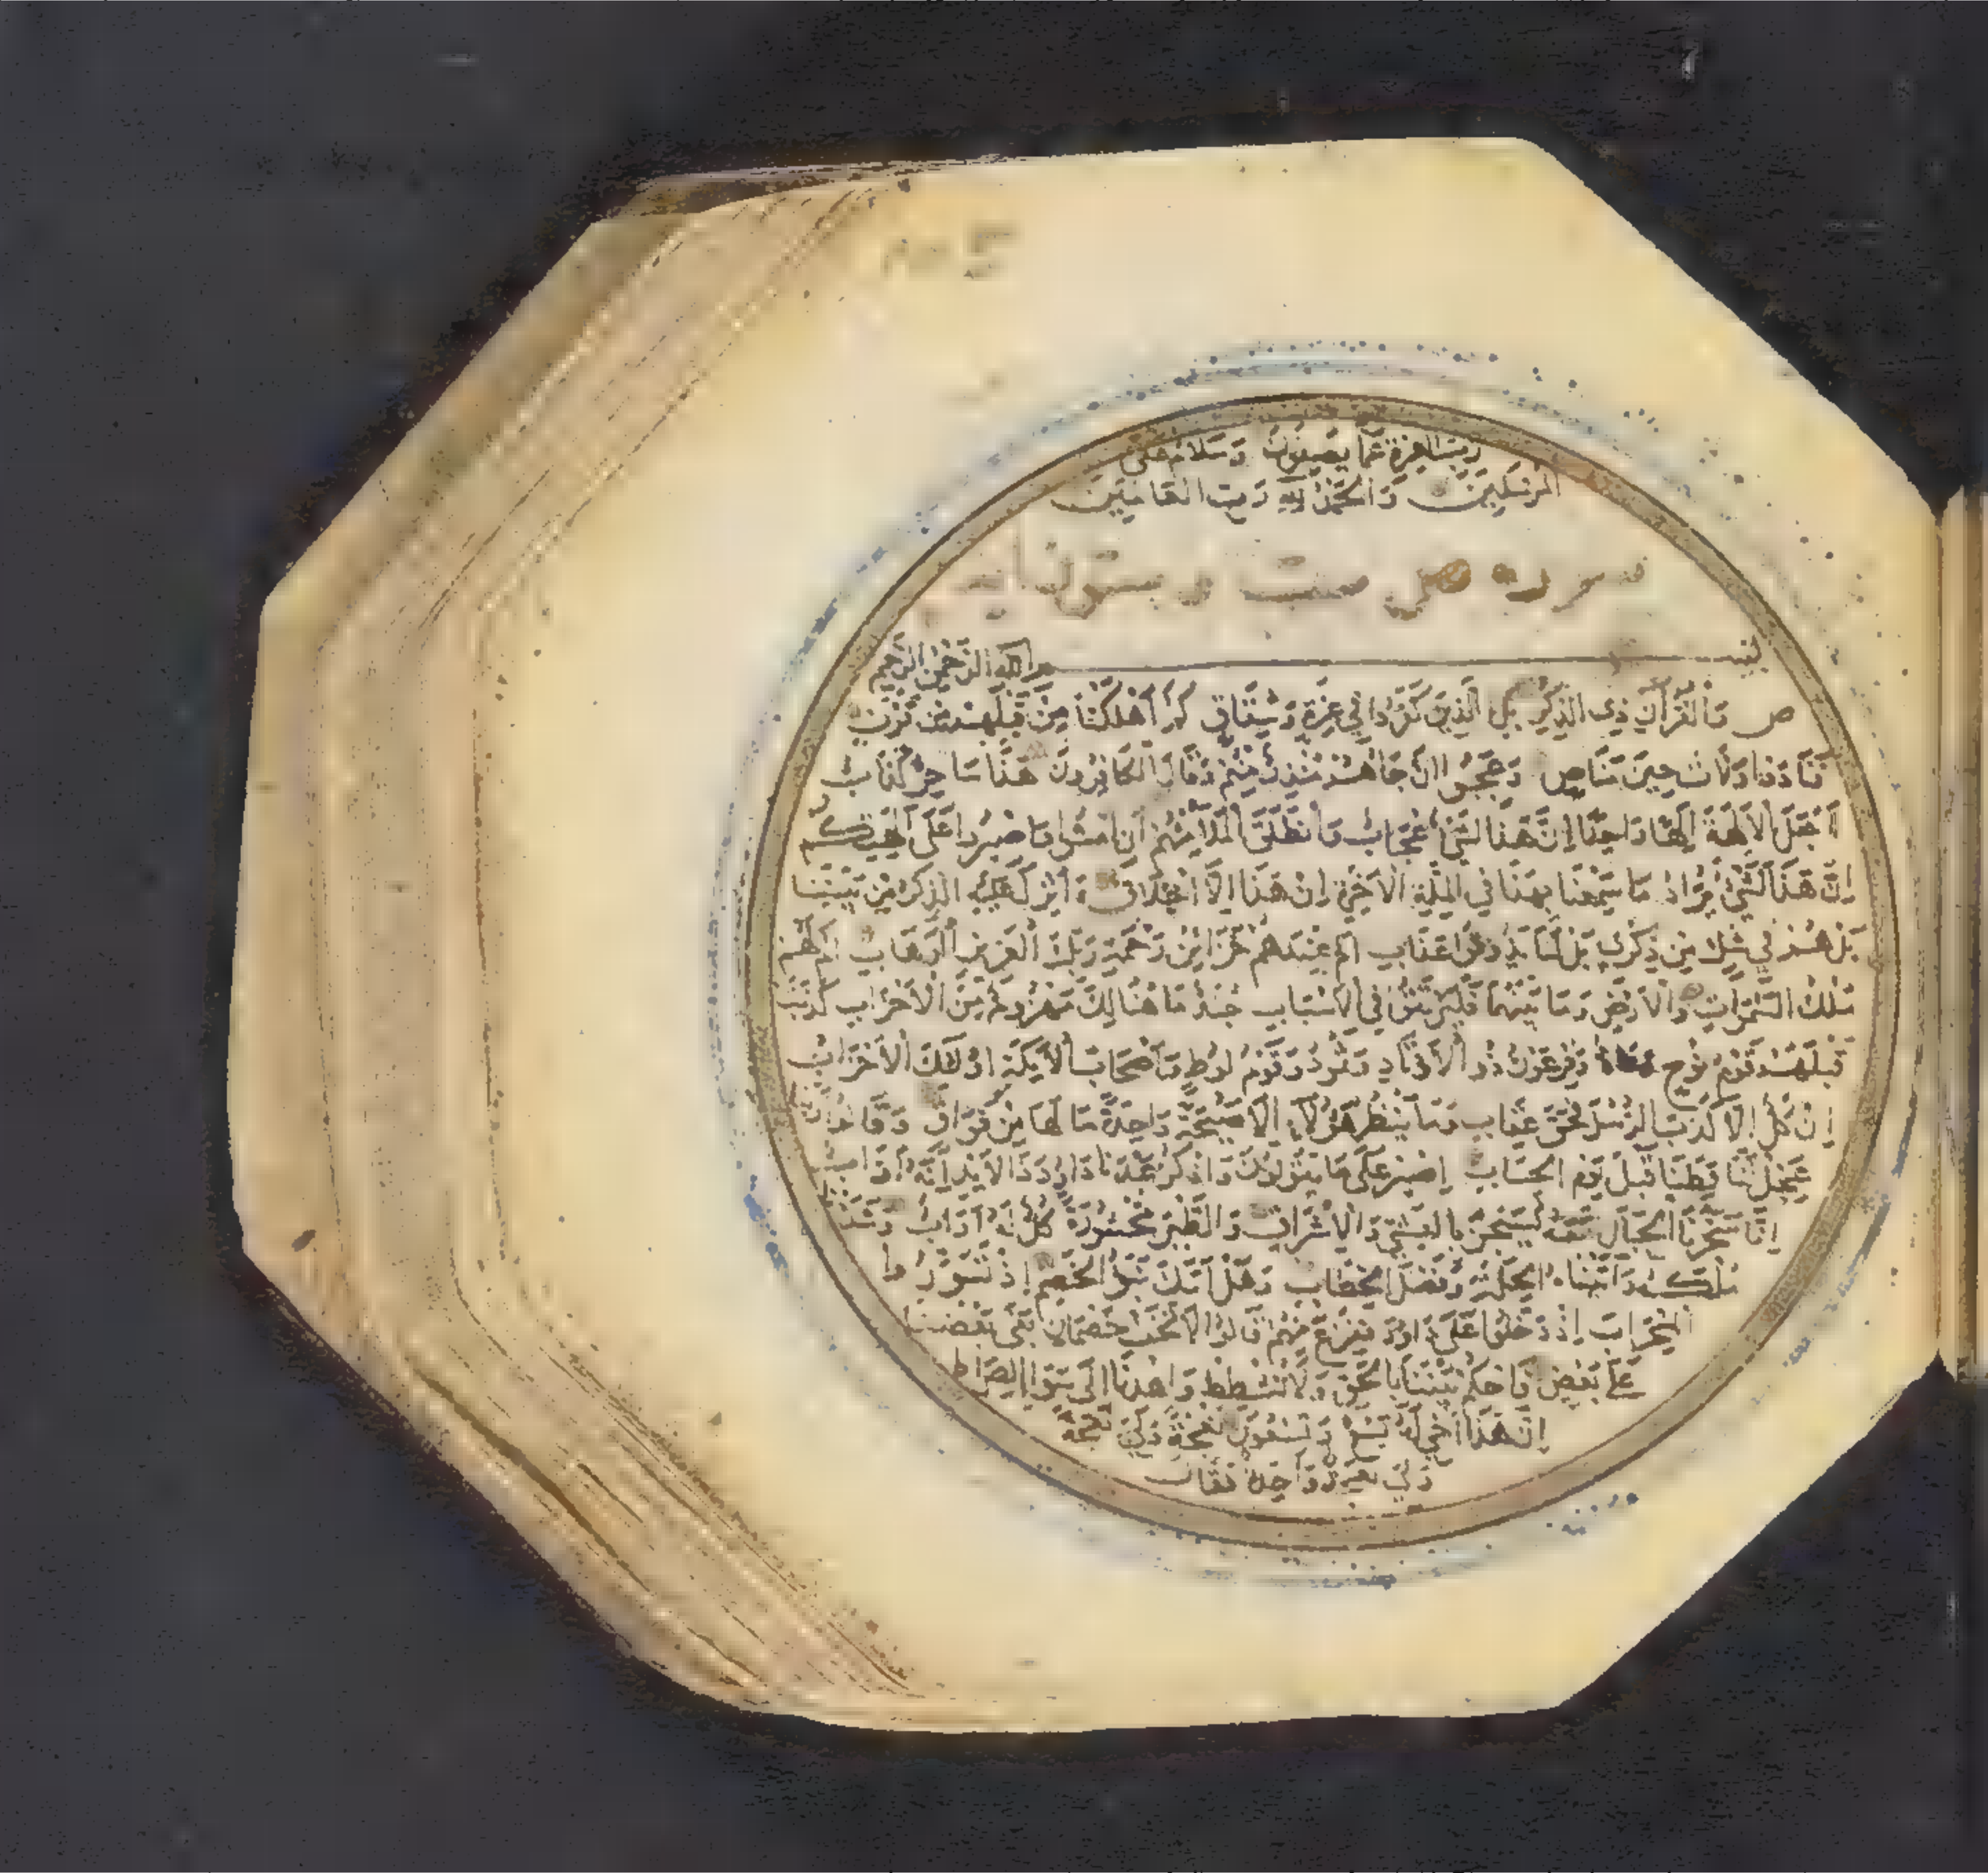 رب العزة عما يصفون وسلام على
المرسلين والحمد لله رب العالمين
سورة ص ست و
بسم الله الرحمن الرحيم
ص والقرآن ذي الذكر بل الذين كفروا في عزة وشقاق كم أهلكنا من قبلهم من قرن
فنادوا ولات حين مناص وعجبوا ان جاهم منذر منهم وقال الكافرون هذا ساحر كذاب
أجعل الالهة إلها واحدا إن هذا لشئ عجاب وانطلق الملأ منهم أن امشوا واصبروا على آلهتكم
إن هذا لشئ يراد ما سمعنا بهذا في الملة الاخرة إن هذا إلا اختلاق ءأنزل عليه الذكر من بيننا
بل هم في شك من ذكري بل لما يذوقوا عذاب ام عندهم خزاين رحمة ربك العزيز الوهاب ام لهم
ملك السموات والارض وما بينهما فليرتقوا في الاسباب جند ما هنالك مهزوم من الاحزاب كذبت
قبلهم قوم نوح وفرعون ذو الاوتاد وثمود وقوم لوط وأصحاب الايكة اولئك الاحزاب
إن كل إلا كذب الرسل فحق عقاب وما ينظر هؤلاء إلا صيحة واحدة ما لها من فواق وقالوا ربنا
عجل لنا قطنا قبل يوم الحساب إصبر على ما يقولون واذكر عبدنا داود ذا الايد إنه أواب
إنا سخرنا الجبال معه يسبحن بالعشي والاشراق والطير محشورة كل له أواب وشددنا
ملكه وآتيناه الحكمة وفصل الخطاب وهل أتك نبؤا الخصم إذ تسوروا
المحراب إذ دخلوا على داود ففزع منهم قالوا لا تخف خصمان بغى بعضنا
على بعض فاحكم بيننا بالحق ولا تشطط واهدنا الى سوا الصراط
إن هذا أخي له تسع وتسعون نعجة ولي نعجة
واحدة فقال